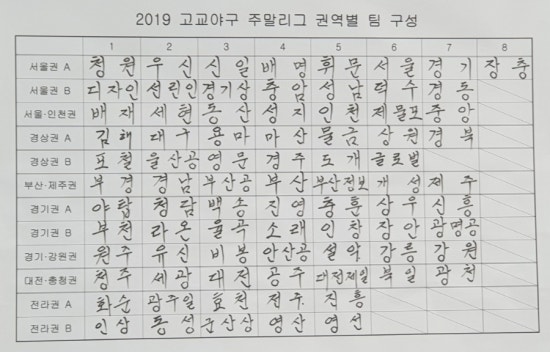 2019 고교야구 주말리그 권역별 팀 구성
1 2 3 4 5 6 7 8
서울권 A 청원 우신 신일 배명 휘문 서울 경기 장충
서울권 B 디자인 선린인 경기상 충암 성남 덕수 경동
서울·인천권 배재 세현 동산 성지 인천 제물포 중앙
경상권 A 김해 대구 용마 마산 물금 상원 경북
경상권 B 포철 울산공 영문 경주 도개 글로벌
부산·제주권 부경 경남 부산공 부산 부산정보 개성 제주
경기권 A 야탑 청담 백송 진영 충훈 상우 신흥
경기권 B 부천 라온 율곡 소래 인창 장안 광명공
경기·강원권 원주 유신 비봉 안산공 설악 강릉 강원
대전·충청권 청주 세광 대전 공주 대전제일 북일 광천
전라권 A 화순 광주일 효천 전주 진흥
전라권 B 인상 동성 군산상 영산 영선